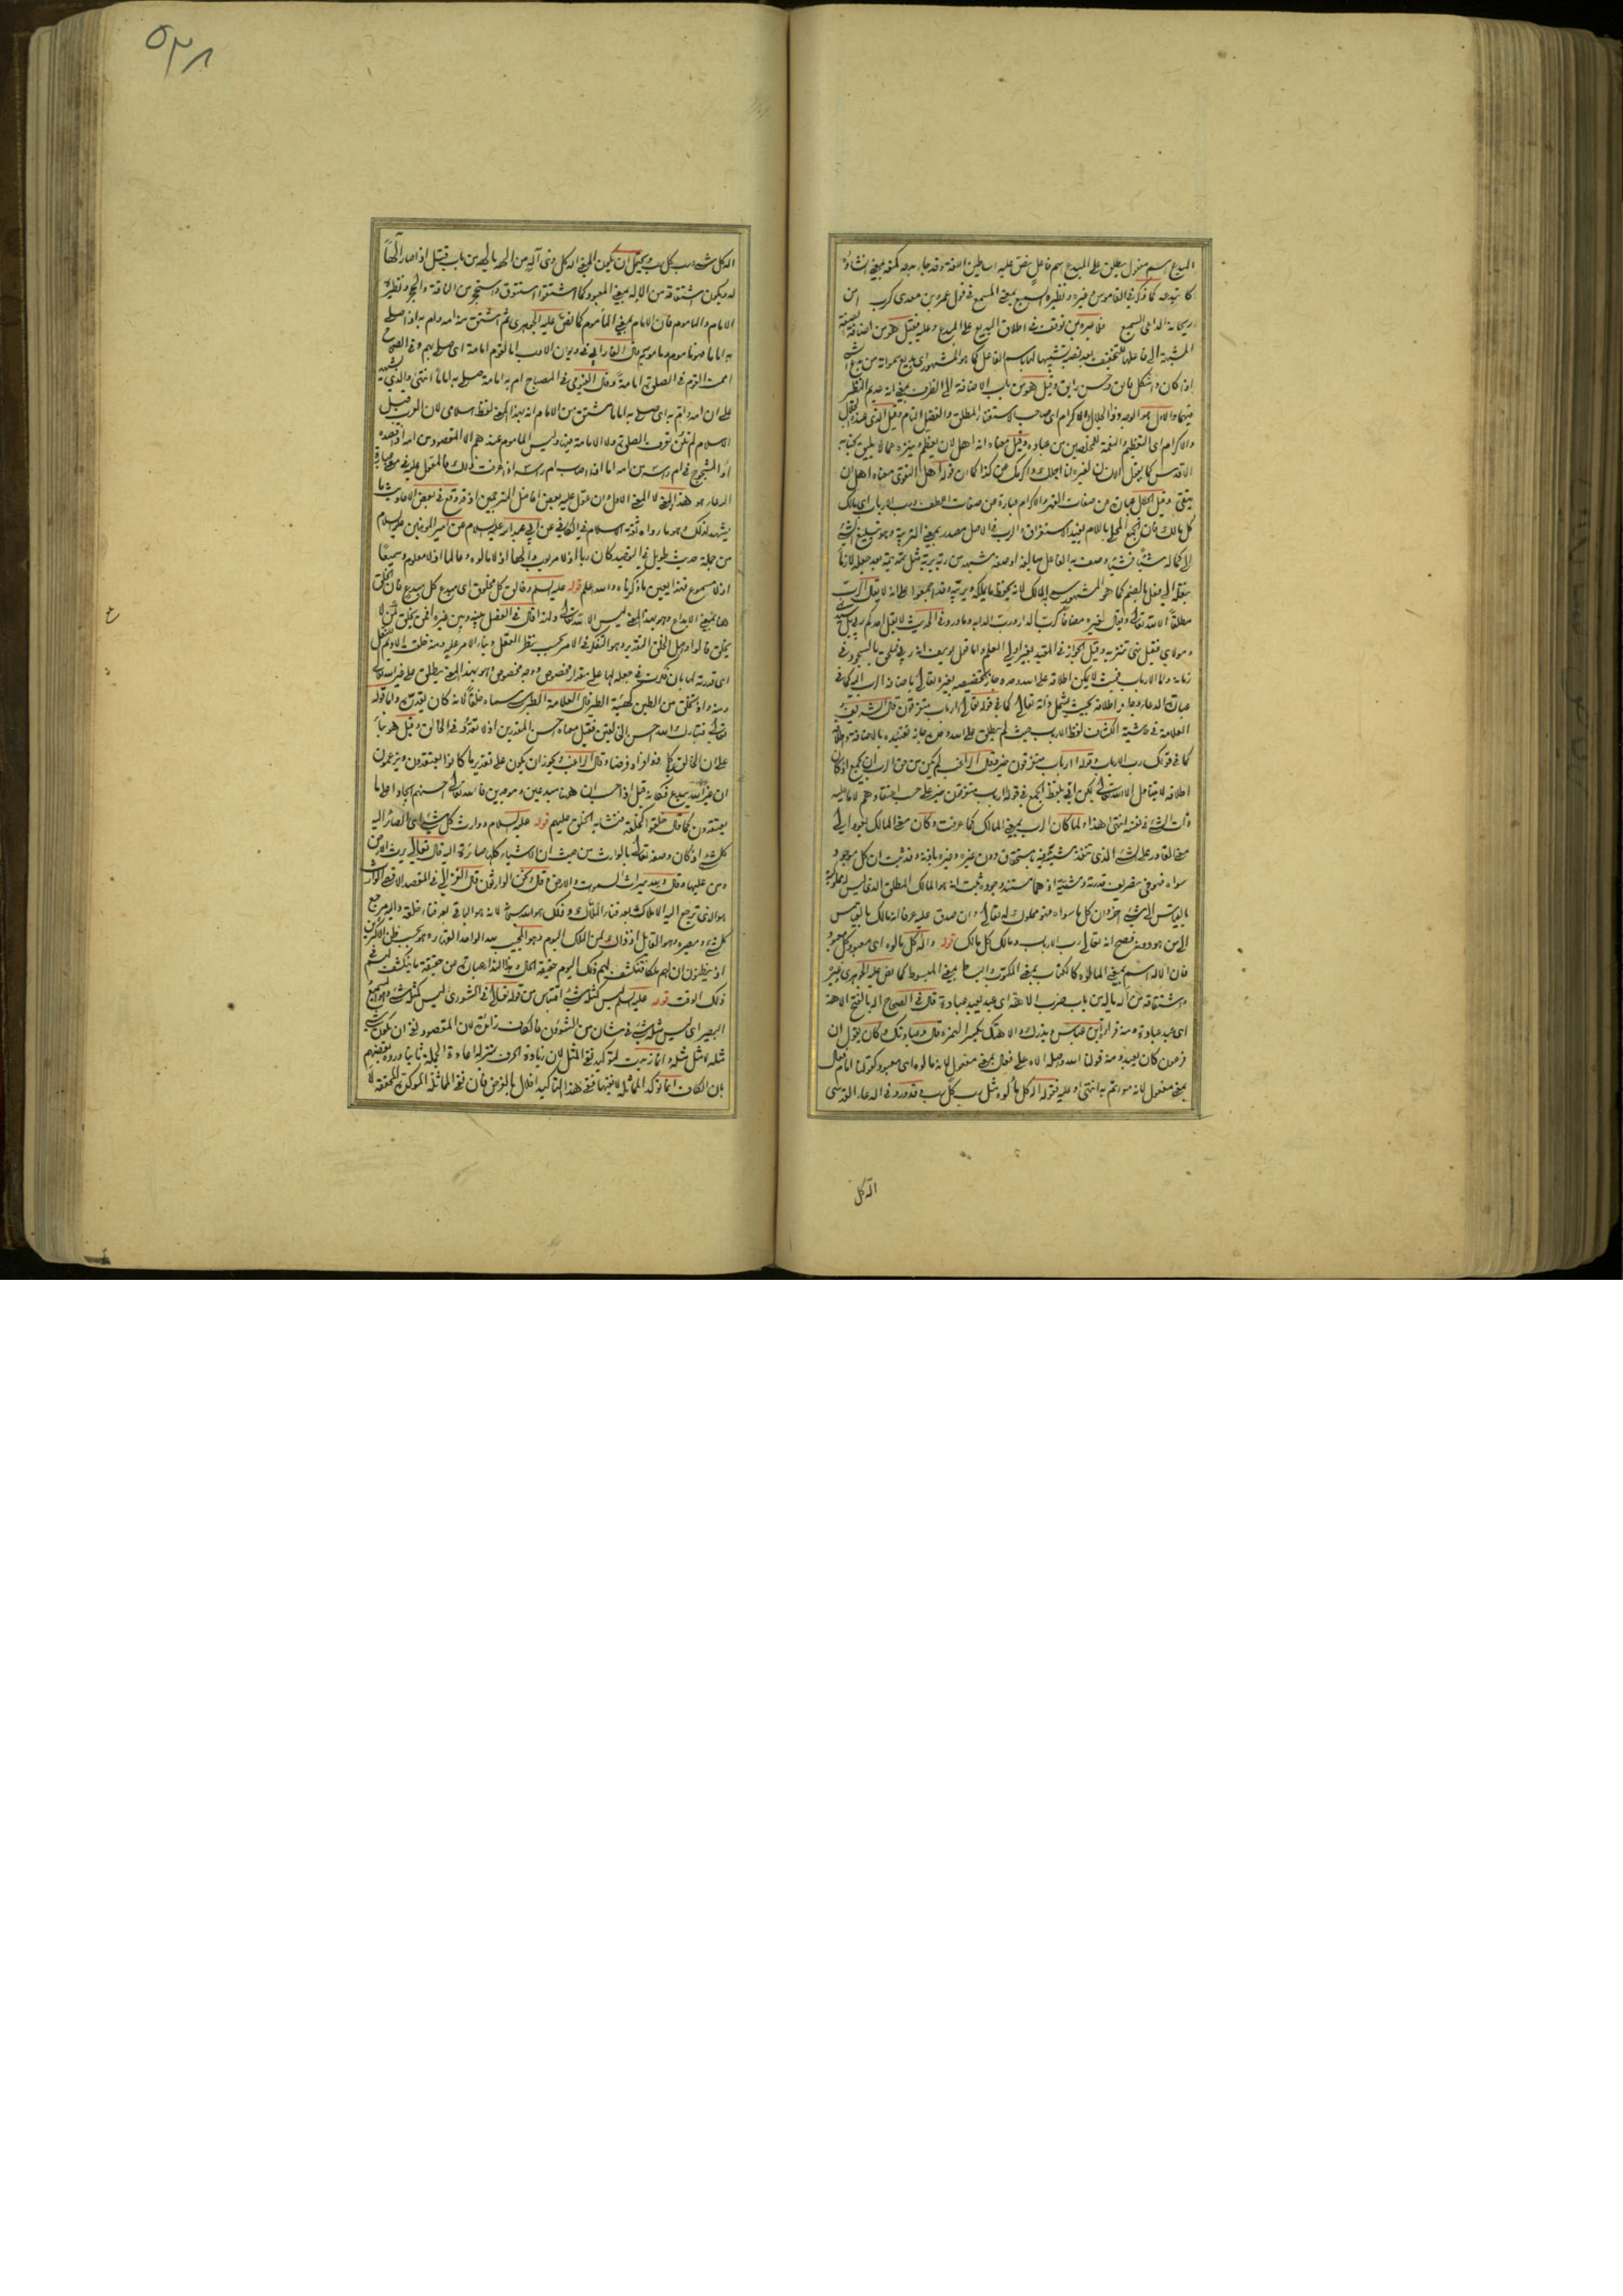 المبدع اسم مفعول يطلق على المبدع اسم فاعل نص عليه اساطين اللغة وقد جاء بدعه كمنعه بمعنى انشاؤه
كابتدعه كما ذكره في القاموس وغيره ونظيره السميع بمعنى المسمع في قول عمرو بن معدى كرب امن
ريحانة الداعى السميع فلا عبرة بمن توقف في اطلاق البديع على المبدع وعليه فقيل هو من اضافة الصفة
المشبهة الى فاعلها للتخفيف بعد نصبه تشبيها لها باسم الفاعل كما هو المشهور اى بديع سمواته من بدع الشئ
اذا كان ذا شكل فايق وحسن رايق وقيل هو من باب الاضافة الى الظرف بمعنى انه عديم النظير
فيهما والاول هو الوجه وذا الجلال والاكرام اى صاحب الاستغناء المطلق والفضل التام وقيل الذى عنده الجلال
والاكرام اى التعظيم والنعمة للمخلصين من عباده وقيل معناه انه اهل لان يعظم وينزه عما لا يليق بجنابه
الاقدس كما يقول الانسان لغيره انا اجلك واكرمك عن كذا كما ان قوله اهل التقوى معناه اهل ان
يتقى وقيل الجلال عبارة عن صفات القهر والاكرام عبارة عن صفات اللطف ورب الارباب اى مالك
كل مالك فان الجمع المحلى باللام يفيد الاستغراق والرب في الاصل مصدر بمعنى التربية وهو تبليغ الشئ
الى كماله شيئا فشيئا وصف به الفاعل مبالغة او صفة مشبهة من ربه يربه مثل نمه ينمه بعد جعله لازما
بنقله الى فعل بالضم كما هو المشهور سمى به المالك لانه يحفظ ما يملكه ويربيه وقد اجمعوا على انه لا يقال الرب
مطلقا الا لله تعالى ويقال لغيره مضافا كرب الدار ورب الدابة وما ورد في الحديث لا يقل احدكم ربى بل سيدى
ومولاى فقيل نهى تنزيه وقيل الجواز في المقيد بغير اولى العلم واما قول يوسف انه ربى فملحق بالسجود في
زمانه واما الارباب فحيث لا يمكن اطلاقه على الله وحده جاز تخصيصه بغيره تعالى باضافة الرب اليه كما في
عبارة الدعاء وجاز اطلاقه بحيث يشمل ذاته تعالى كما في قوله تعالى ارباب متفرقون قال الشريف
العلامة في حاشية الكشاف لفظ الارباب حيث لم يطلق على الله وحده جاز تقييده بالاضافة واطلاقه
كما في قولك رب الارباب وقوله ارباب متفرقون خير وقال الراغب لم يكن من حق الرب ان يجمع اذ كان
اطلاقه لا يتناول الا الله تعالى لكن اتى بلفظ الجمع في قوله ارباب متفرقون خير على حسب اعتقادهم لا ما عليه
ذات الشئ في نفسه انتهى هذا ولما كان الرب بمعنى المالك كما عرفت وكان معنى المالك يعود الى
معنى القادر على الشئ الذى تنفذ مشيته فيه باستحقاق دون غيره وغيره باذنه وقد ثبت ان كل موجود
سواه فهو في تصريف قدرته ومشيته اذ هما مستند وجوده ثبت انه هو المالك المطلق الذى ليس له مملوكية
بالقياس الى شئ اخر وان كل ما سواه فهو مملوك له تعالى وان صدق عليه عرفا انه مالك بالقياس
الى من هو دونه فصح انه تعالى رب الارباب ومالك كل مالك قوله واله كل مألوه اى معبود كل معبود
فان الاله اسم بمعنى المألوه كالكتاب بمعنى المكتوب والبساط بمعنى المبسوط كما نص عليه الجوهرى وغيره
واشتقاقه من اله يأله من باب ضرب الاهة اى عبد يعبد عبادة قال في الصحاح اله بالفتح الاهة
اى عبد عبادة ومنه قرا ابن عباس ويذرك والاهتك بكسر الهمزة قال وعبادتك وكان يقول ان
فرعون كان يعبد ومنه قولنا الله واصله الاه على فعال بمعنى مفعول لانه مألوه اى معبود كقولنا امام فعال
بمعنى مفعول لانه مؤتم به انتهى وعليه فقوله اله كل مألوه مثل رب كل رب وقد ورد في الدعاء القدسى
اله كل
٥٣٨
اله كل شئ ورب كل رب ويحتمل ان يكون المعنى اله كل ذى آله من اله بالهه من باب قتل اذا صار آلها
له ويكون اشتقاقه من الاله بمعنى المعبود كما اشتقوا استنوق واستحجر من الناقة والحجر ونظيره
الامام والمأموم فان الامام بمعنى المأموم كما نص عليه الجوهرى ثم اشتق منه امه وام به اذا صلى
به اماما فهو مأموم ومأموم به قال الفارابى في ديوان الادب ام القوم امامة اى صلى بهم وفى الصحاح
اممت القوم في الصلوة امامة وقال الفيومى في المصباح ام به امامة صلى به اماما انتهى والذى يشهد
على ان امه وائتم به اى صلى به اماما مشتق من الامام انه بهذا المعنى لفظ اسلامى لان العرب قبل
الاسلام لم تكن تعرف الصلوة ولا الامامة فيها وليس المأموم عندهم الا المقصود من امه اذا قصده
او المشجوج في ام راسه من امه اما اذا اصاب ام راسه اذا عرفت ذلك فالمعول عليه في معنى عبارة
الدعاء هو هذا المعنى لا المعنى الاول وان عول عليه بعض افاضل المترجمين اذ قد وقع في بعض الاحاديث ما
يشهد لذلك وهو ما رواه ثقة الاسلام في الكافى عن ابى عبد الله عليه السلام عن امير المؤمنين عليه السلام
من جملة حديث طويل في التوحيد كان ربا اذ لا مربوب والها اذ لا مألوه وعالما اذ لا معلوم وسميعا
اذ لا مسموع فهذا يعين ما ذكرناه والله اعلم قوله عليه السلم وخالق كل مخلوق اى مبدع كل مبدع فان الخلق
هنا بمعنى الابداع وهو بهذا المعنى ليس الا لله تعالى ولهذا قال في الفصل بينه وبين غيره افمن يخلق كمن لا
يخلق قالوا واصل الخلق التقدير وهو التفكر في الامر بحسب نظر العقل وبناء الامر عليه ومنه خلقت الاديم للنعل
اى قدرته لها بان فكرت في جعله لها على مقدار مخصوص ووجه مخصوص وهو بهذا المعنى يطلق على غير الله تعالى
ومنه واذ تخلق من الطين كهيئة الطير قال العلامة الطبرسى سماه خلقا لانه كان يقدره واما قوله
تعالى فتبارك الله احسن الخالقين فقيل معناه احسن المقدرين اذ لا تعدد في الخالق وقيل هو بناء
على ان الخالق يكون فعلا ولو ادعاء وفرضا وقال الراغب ويجوز ان يكون على تقدير ما كانوا يعتقدون ويزعمون
ان غير الله يبدع فكانه قيل اذا حسب ان ههنا مبدعين وموجدين فالله تعالى احسنهم ايجادا على ما
يعتقدون كما قال خلقوا كخلقه فتشابه الخلق عليهم قوله عليه السلام ووارث كل شئ اى الصائر اليه
كل شئ اذ كان وصفه تعالى بالوارث من حيث ان الاشياء كلها صائرة اليه قال تعالى يرث الارض
ومن عليها وقال ولله ميراث السموات والارض وقال ونحن الوارثون قال الغزالى في المقصد الاقصى الوارث
هو الذى ترجع اليه الاملاك بعد فناء الملاك وذلك هو الله سبحانه لانه هو الباقى بعد فناء خلقه واليه مرجع
كل شئ ومصيره وهو القايل اذ ذاك لمن الملك اليوم وهو المجيب لله الواحد القهار وهو بحسب ظن الاكثرين
اذ يظنون ان لهم ملكا فتنكشف لهم ذلك اليوم حقيقة الحال وهذا النداء عبارة عن حقيقة ما ينكشف لهم في
ذلك الوقت قوله عليه السلم ليس كمثله شئ اقتباس من قوله تعالى في الشورى ليس كمثله شئ وهو السميع
البصير اى ليس مثله شئ في شان من الشؤون فالكاف زائدة لان المقصود نفى ان يكون شئ
مثله لا مثل مثله وانما زيدت لتوكيد نفى المثل لان زيادة الحرف بمنزلة اعادة الجملة ثانيا ورده بعضهم
بان الكاف انما تؤكد المماثلة لا نفيها ففى هذا التأكيد اخلال بالغرض فان نفى المماثلة المؤكدة المحققة لا